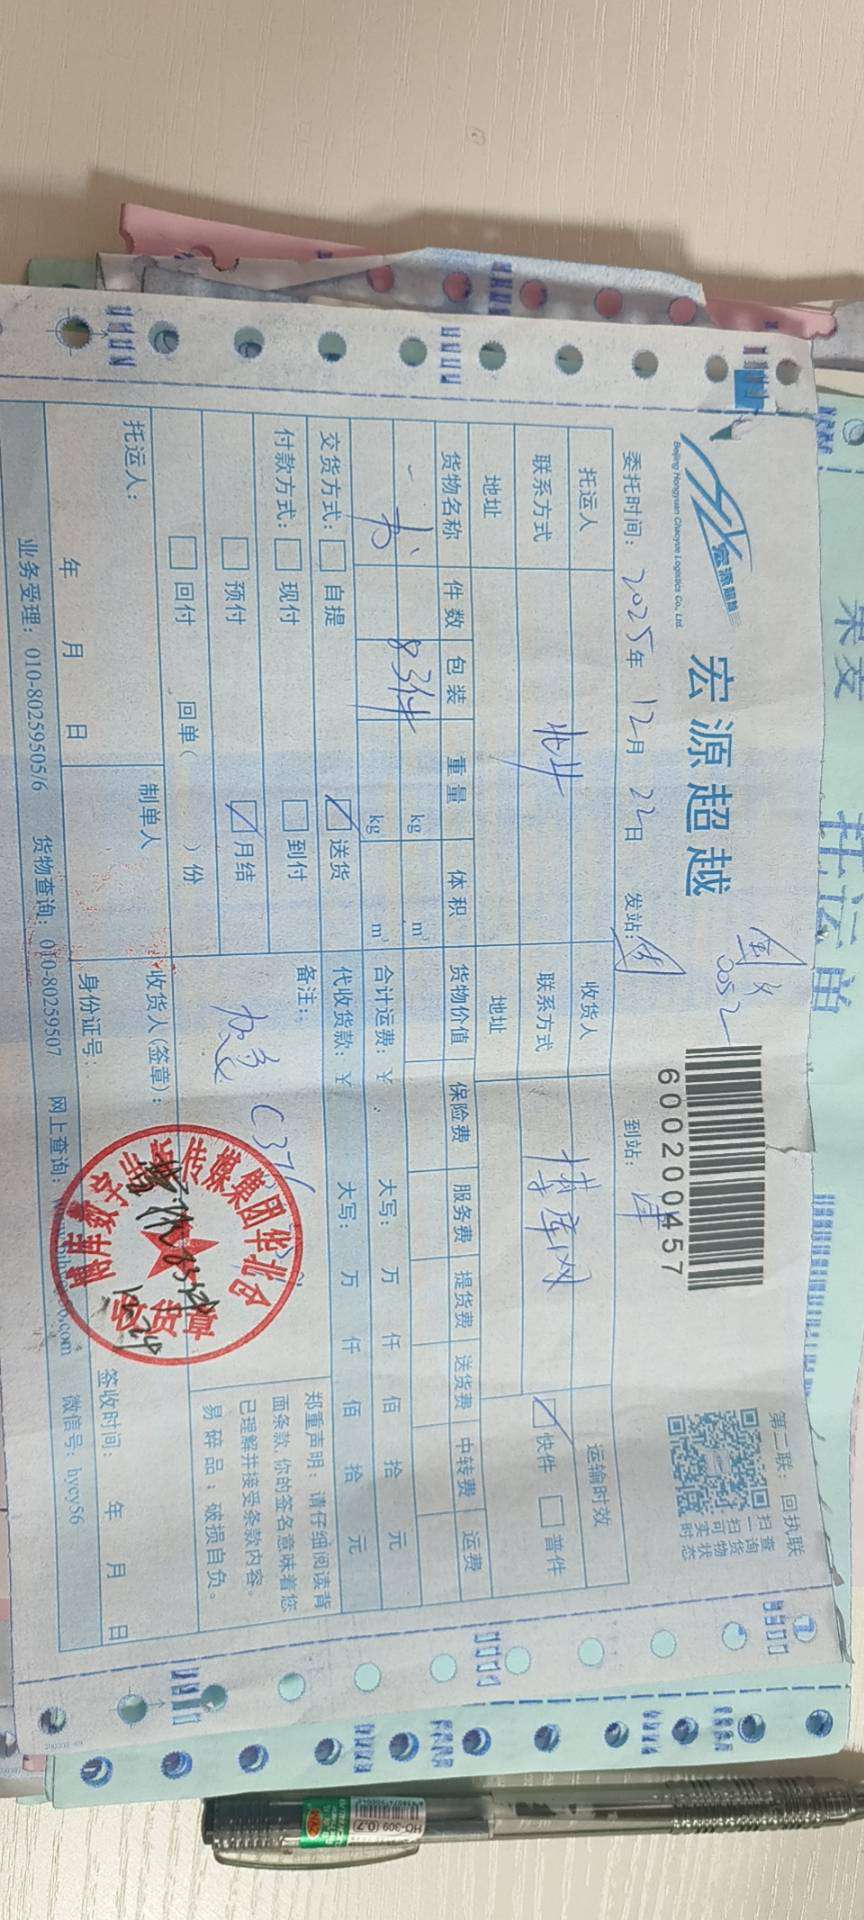 宏源超越
Beijing Hongyuan Chaoyue Logistics Co., Ltd.
宏源超越
600200457
第二联：回执联
扫一扫可查询货物实时状态
委托时间：2025年12月22日 发站： 到站：
托运人 收货人 博库网 运输时效
联系方式 联系方式 快件 普件
地址 地址
货物名称 件数 包装 重量 体积 货物价值 保险费 服务费 提货费 送货费 中转费 运费
kg m³
书 83件 kg m³
合计运费：¥ 大写： 万 仟 佰 拾 元
交货方式： 自提 送货 代收货款：¥ 大写： 万 仟 佰 拾 元
付款方式： 现付 到付 备注： 加急 C376
预付 月结
回付 回单（ ）份
郑重声明：请仔细阅读背面条款，你的签名意味着您已理解并接受条款内容。
易碎品；破损自负。
托运人： 制单人 收货人（签章）：
年 月 日 身份证号： 签收时间： 年 月 日
博库数字出版传媒集团华北仓
收货章
业务受理：010-80259505/6 货物查询：010-80259507 网上查询： 微信号：hycy56
托运单
HO-309 (0.7)